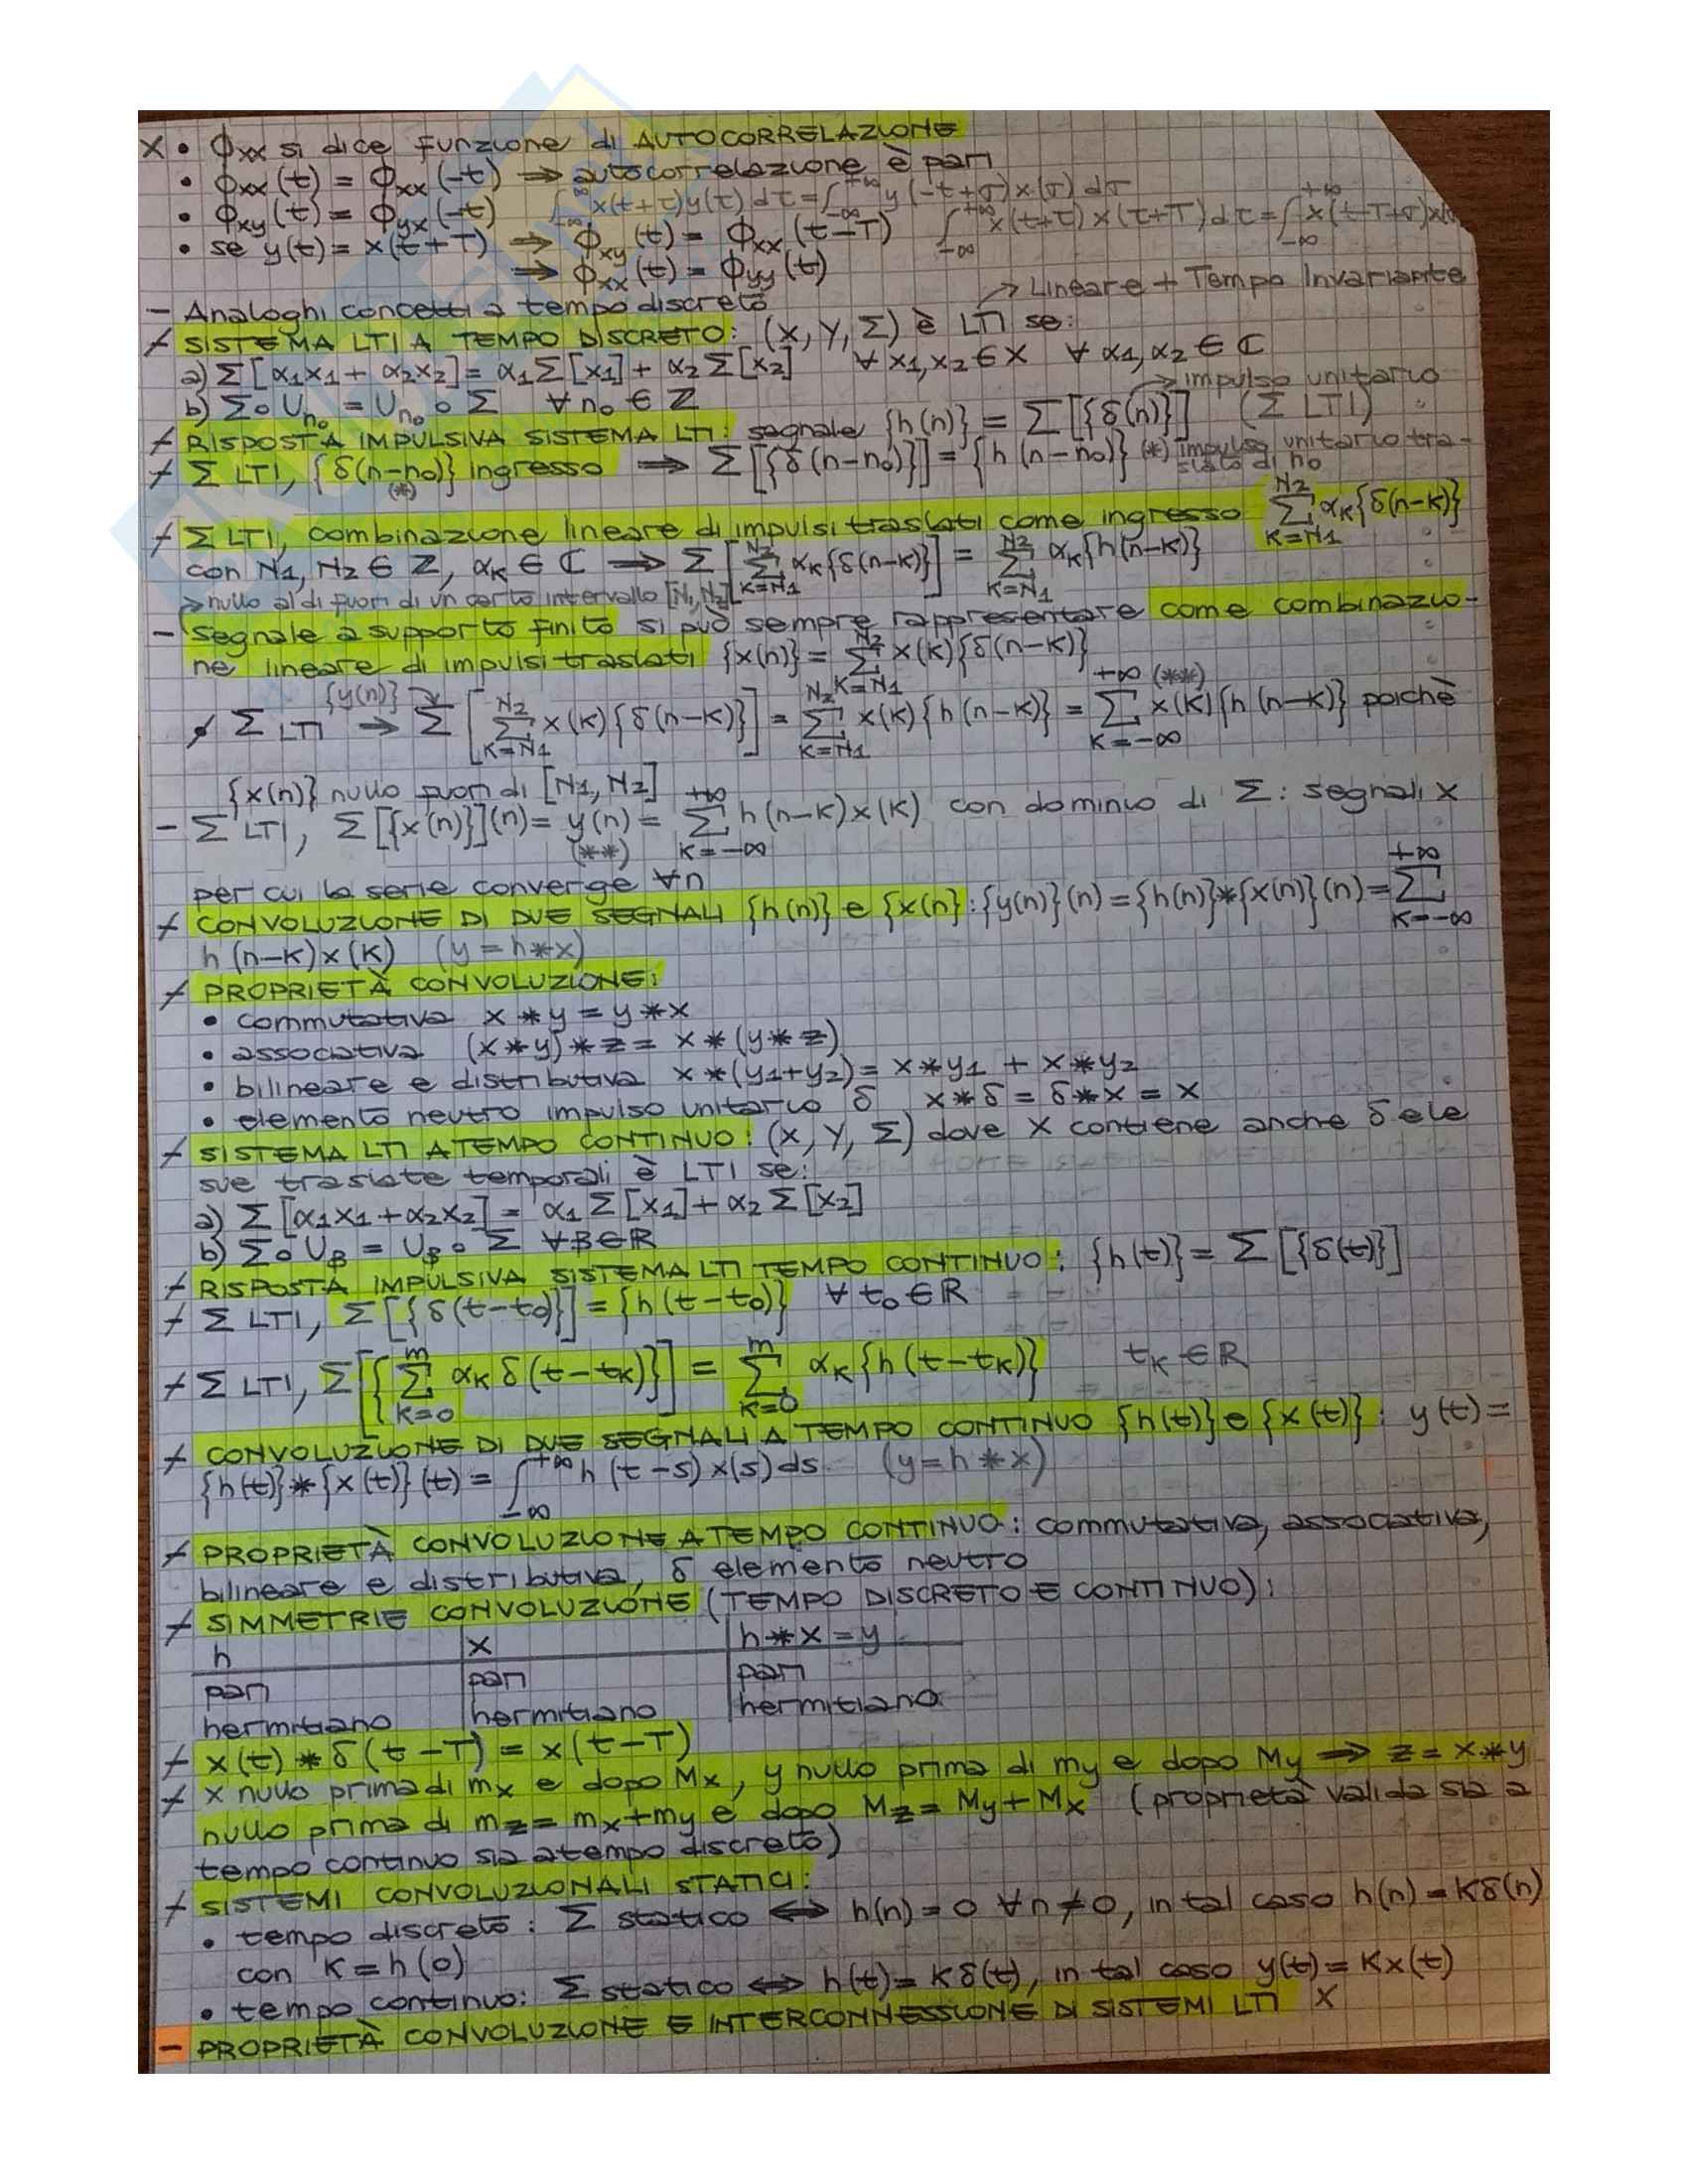 X • ϕxx si dice funzione di AUTOCORRELAZIONE
• ϕxx(t) = ϕxx(-t) ⇒ autocorrelazione è pari
• ϕxy(t) = ϕyx(-t) ∫_{-∞}^{+∞} x(t+τ)y(τ)dτ = ∫_{-∞}^{+∞} y(-t+σ)x(σ)dσ
• se y(t) = x(t+T) ⇒ ϕxy(t) = ϕxx(t-T) ∫_{-∞}^{+∞} x(t+τ)x(τ+T)dτ = ∫_{-∞}^{+∞} x(t-T+σ)x(σ
⇒ ϕxx(t) = ϕyy(t)
→ Lineare + Tempo Invariante
- Analoghi concetti a tempo discreto
/ SISTEMA LTI A TEMPO DISCRETO: (X, Y, Σ) è LTI se:
a) Σ[α1x1 + α2x2] = α1Σ[x1] + α2Σ[x2] ∀ x1, x2 ∈ X ∀ α1, α2 ∈ ℂ
b) Σ∘U_{n0} = U_{n0}∘Σ ∀ n0 ∈ ℤ → impulso unitario
/ RISPOSTA IMPULSIVA SISTEMA LTI: segnale {h(n)} = Σ[{δ(n)}] (Σ LTI)
/ Σ LTI, {δ(n-n0)} ingresso ⇒ Σ[{δ(n-n0)}] = {h(n-n0)} (*) impulso unitario tra-
(*) slato di n0
/ Σ LTI, combinazione lineare di impulsi traslati come ingresso Σ_{K=N1}^{N2} αK{δ(n-K)}
con N1, N2 ∈ ℤ, αK ∈ ℂ ⇒ Σ[Σ_{K=N1}^{N2} αK{δ(n-K)}] = Σ_{K=N1}^{N2} αK{h(n-K)}
→ nullo al di fuori di un certo intervallo [N1, N2]
- segnale a supporto finito si può sempre rappresentare come combinazio-
ne lineare di impulsi traslati {x(n)} = Σ_{K=N1}^{N2} x(K){δ(n-K)}
{y(n)}
/ Σ LTI → Σ[Σ_{K=N1}^{N2} x(K){δ(n-K)}] = Σ_{K=N1}^{N2} x(K){h(n-K)} = Σ_{K=-∞}^{+∞ (**)} x(K){h(n-K)} poichè
{x(n)} nullo fuori di [N1, N2]
- Σ LTI, Σ[{x(n)}](n) = y(n) = Σ_{K=-∞}^{+∞} h(n-K)x(K) con dominio di Σ: segnali x
(**)
per cui la serie converge ∀n
/ CONVOLUZIONE DI DUE SEGNALI {h(n)} e {x(n)}: {y(n)}(n) = {h(n)}*{x(n)}(n) = Σ_{K=-∞}^{+∞}
h(n-K)x(K) (y = h*x)
/ PROPRIETÀ CONVOLUZIONE:
• commutativa x*y = y*x
• associativa (x*y)*z = x*(y*z)
• bilineare e distributiva x*(y1+y2) = x*y1 + x*y2
• elemento neutro impulso unitario δ x*δ = δ*x = x
/ SISTEMA LTI A TEMPO CONTINUO: (X, Y, Σ) dove X contiene anche δ e le
sue traslate temporali è LTI se:
a) Σ[α1x1+α2x2] = α1Σ[x1] + α2Σ[x2]
b) Σ∘U_β = U_β∘Σ ∀β∈ℝ
/ RISPOSTA IMPULSIVA SISTEMA LTI TEMPO CONTINUO: {h(t)} = Σ[{δ(t)}]
/ Σ LTI, Σ[{δ(t-t0)}] = {h(t-t0)} ∀ t0 ∈ ℝ
/ Σ LTI, Σ[{Σ_{K=0}^{m} αK δ(t-tK)}] = Σ_{K=0}^{m} αK{h(t-tK)} tK ∈ ℝ
/ CONVOLUZIONE DI DUE SEGNALI A TEMPO CONTINUO {h(t)} e {x(t)}: y(t) =
{h(t)}*{x(t)}(t) = ∫_{-∞}^{+∞} h(t-s)x(s)ds (y = h*x)
/ PROPRIETÀ CONVOLUZIONE A TEMPO CONTINUO: commutativa, associativa,
bilineare e distributiva, δ elemento neutro
/ SIMMETRIE CONVOLUZIONE (TEMPO DISCRETO E CONTINUO):
h | x | h*x = y
pari | pari | pari
hermitiano | hermitiano | hermitiano
/ x(t)*δ(t-T) = x(t-T)
/ x nullo prima di mx e dopo Mx, y nullo prima di my e dopo My ⇒ z = x*y
nullo prima di mz = mx+my e dopo Mz = My+Mx (proprietà valida sia a
tempo continuo sia a tempo discreto)
/ SISTEMI CONVOLUZIONALI STATICI:
• tempo discreto: Σ statico ⇔ h(n) = 0 ∀n≠0, in tal caso h(n) = Kδ(n)
con K = h(0)
• tempo continuo: Σ statico ⇔ h(t) = Kδ(t), in tal caso y(t) = Kx(t)
- PROPRIETÀ CONVOLUZIONE E INTERCONNESSIONE DI SISTEMI LTI X